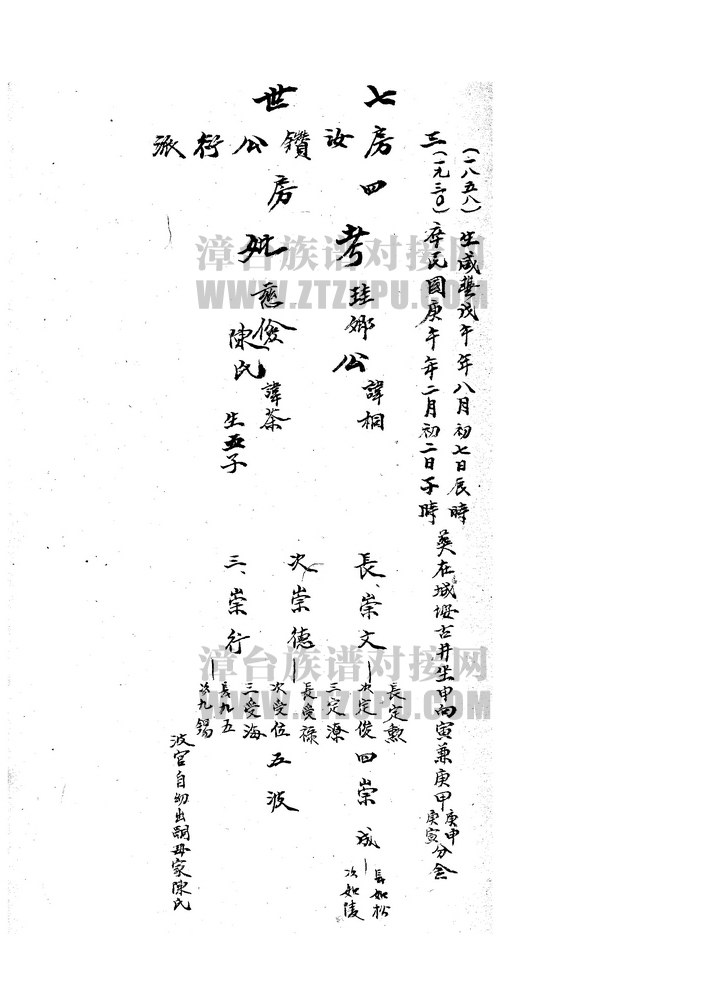 七世
房四房
汝鑽公衍派
(一八五八)
生咸豐戊午年八月初七日辰時
三(一九三〇)
卒民國庚午年二月初二日子時
葬在城墘古井坐申向寅兼庚甲
庚申
庚寅
分金
考
珪鄉公
諱桐
妣
慈儉
陳氏
諱茶
生五子
長、崇文
長定勳
次定俊
三定潦
次崇德
長受祿
次受位
三受海
三、崇行
長九五
次九錫
四崇成
長如松
次如陵
五波
波官自幼出嗣母家陳氏
漳台族谱对接网
WWW.ZTZUPU.COM
漳台族谱对接网
WWW.ZTZUPU.COM